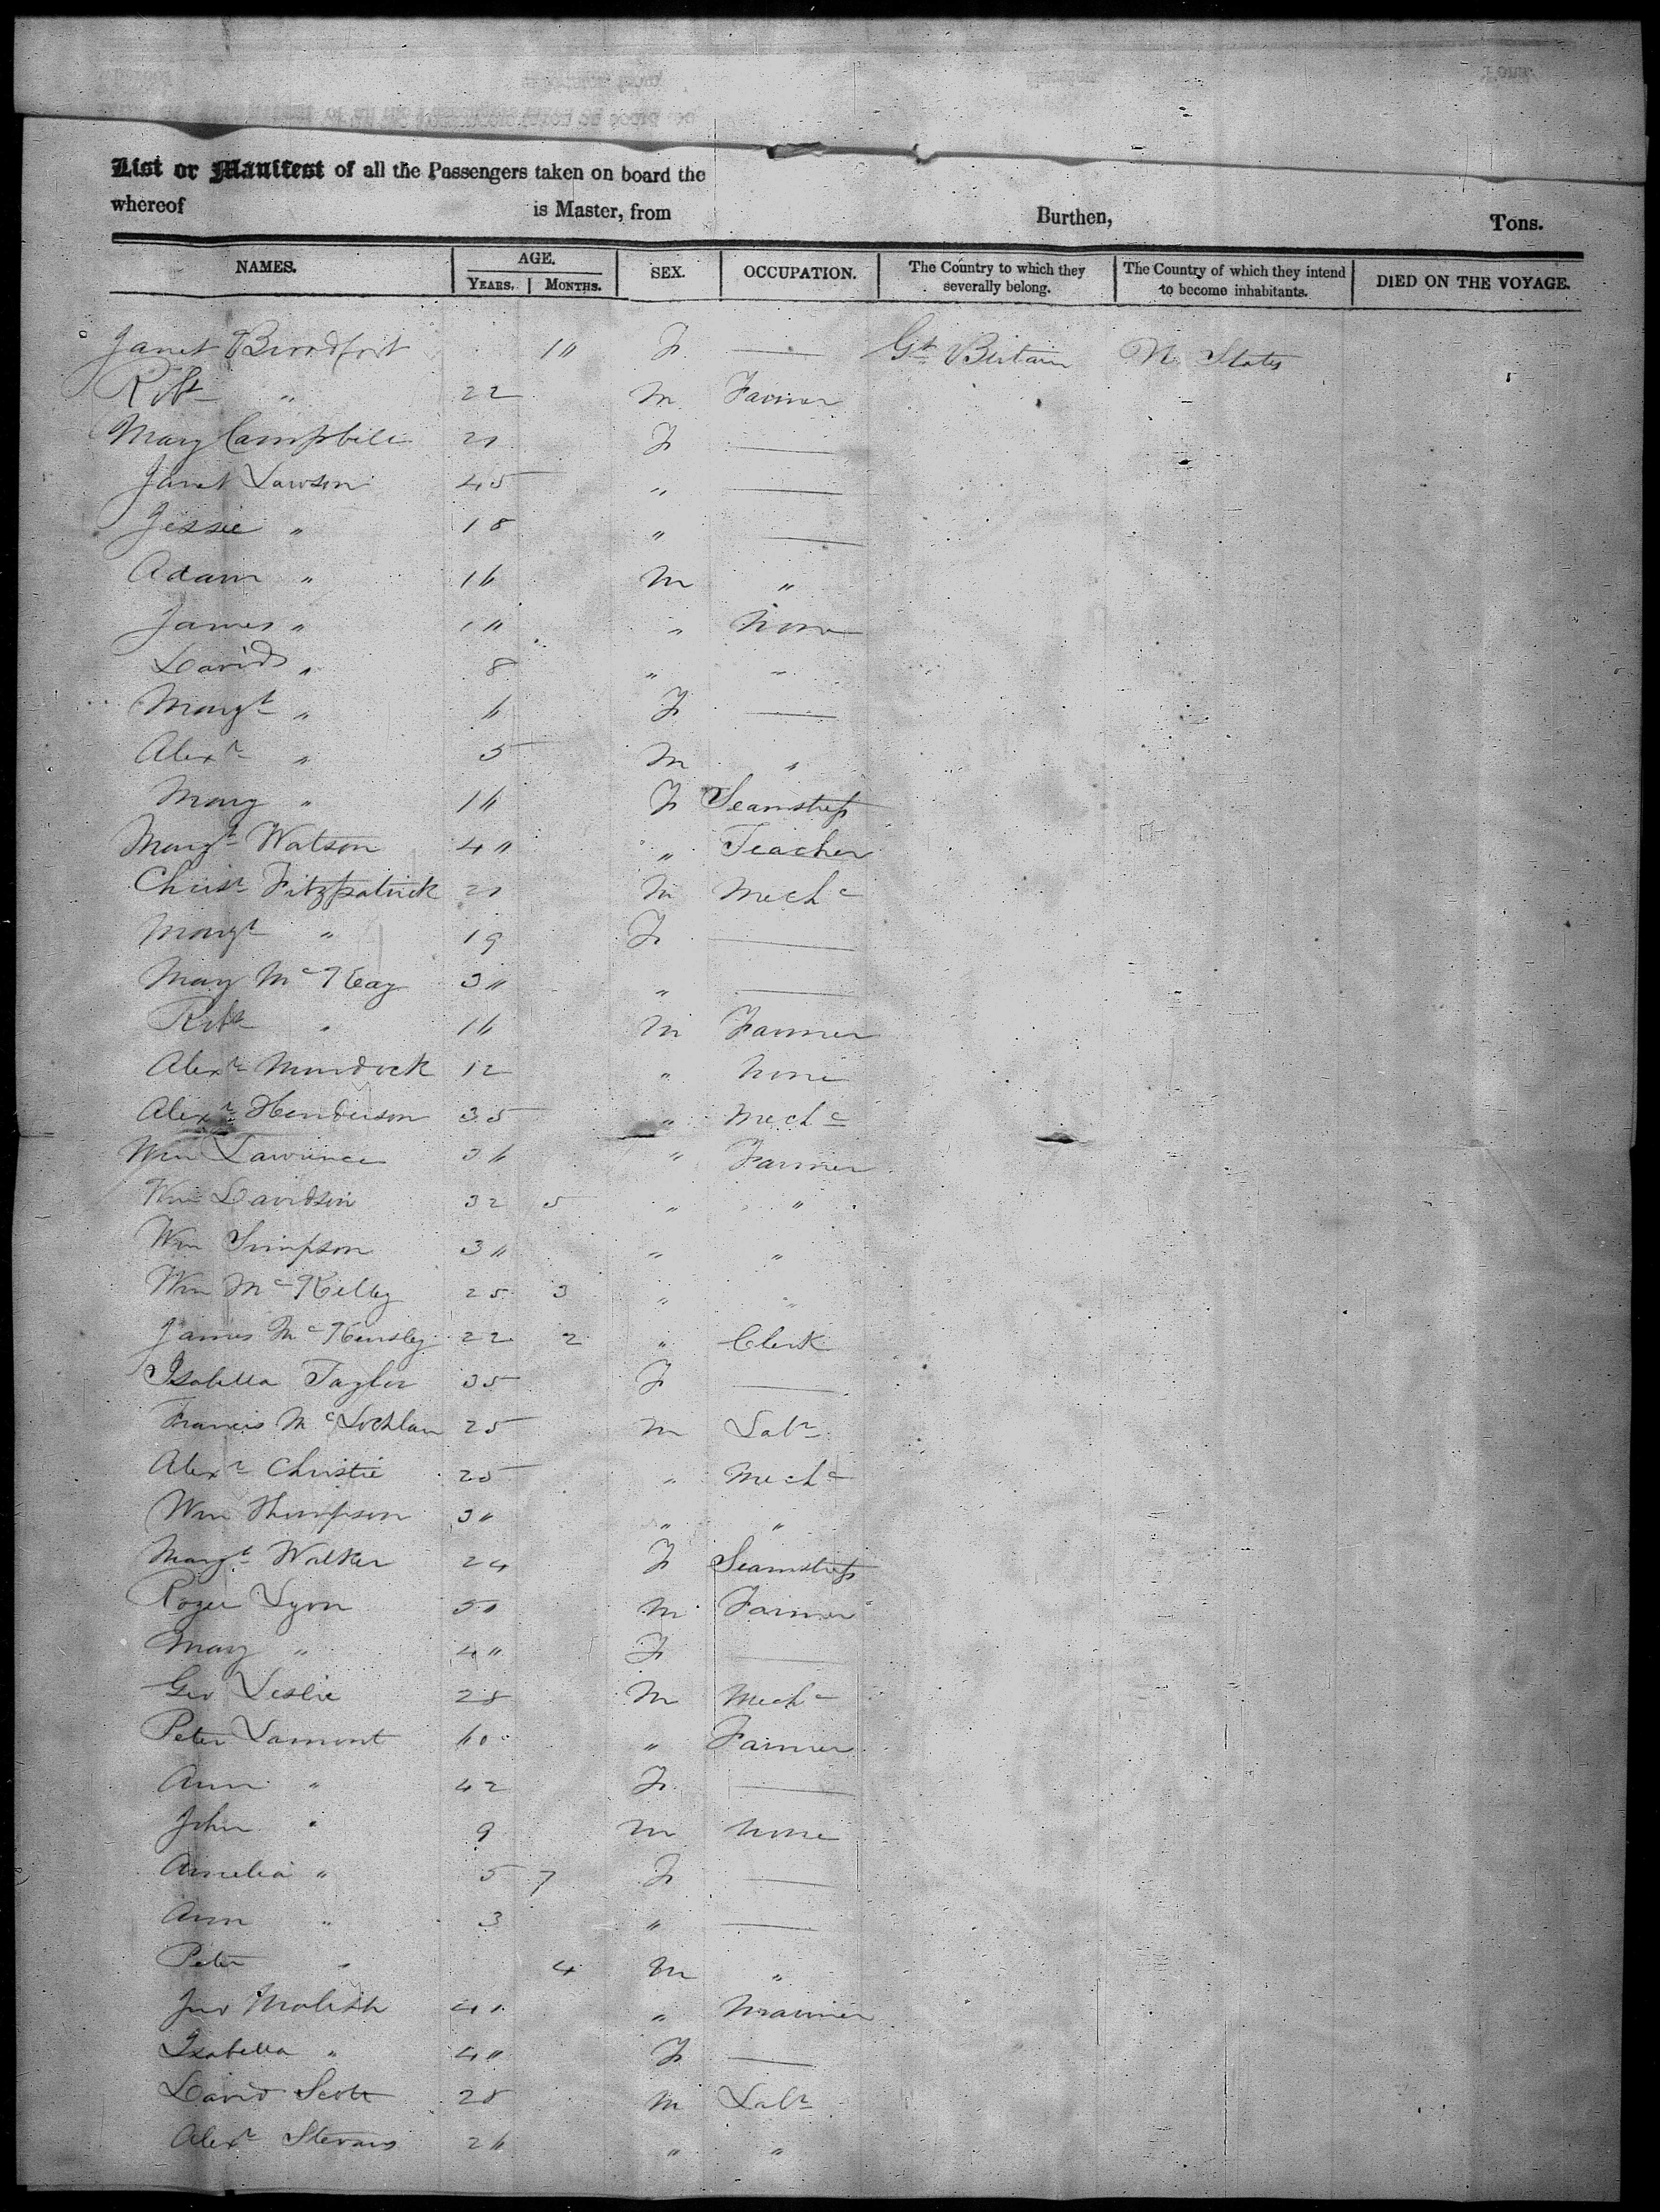 List or Manifest of all the Passengers taken on board the
whereof is Master, from Burthen, Tons.
NAMES. AGE. YEARS. MONTHS. SEX. OCCUPATION. The Country to which they severally belong. The Country of which they intend to become inhabitants. DIED ON THE VOYAGE.
Janet 10 F — Gt Britain U. States
Robt " 22 M Farmer
Mary Campbell 20 F —
Janet Lawson 45 " —
Jessie " 18 " —
Adam " 16 M "
James " 10 " None
David " 8 " "
Margt " 6 F —
Alexr " 5 M "
Mary " 16 F Seamstress
Margt Watson 40 " Teacher
Christr Fitzpatrick 20 M Mechc
Margt " 19 F —
Mary McKay 30 " —
Robt " 16 M Farmer
Alexr Murdock 12 " None
Alexr Henderson 35 " Mechc
Wm Lawrence 36 " Farmer
Wm Davidson 32 5 " "
Wm Simpson 30 " "
Wm McKelly 25 3 " "
James 22 2 " Clerk
Isabella Taylor 35 F —
Francis McLochlan 25 M Labr
Alexr Christie 25 " Mechc
Wm Thompson 30 " "
Margt Walker 24 F Seamstress
Roger Lyon 50 M Farmer
Mary " 40 F —
Geo Leslie 28 M Mechc
Peter Lamont 60 " Farmer
Ann " 42 F —
John " 9 M None
Amelia " 5 7 F —
Ann " 3 " —
Peter " 4 M "
Jno 40 " Mariner
Isabella " 40 F —
David Scott 28 M Labr
Alexr Stevens 26 " "